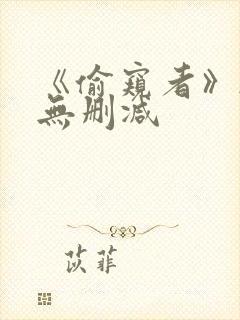 《偷窺者》
無删減
苡菲